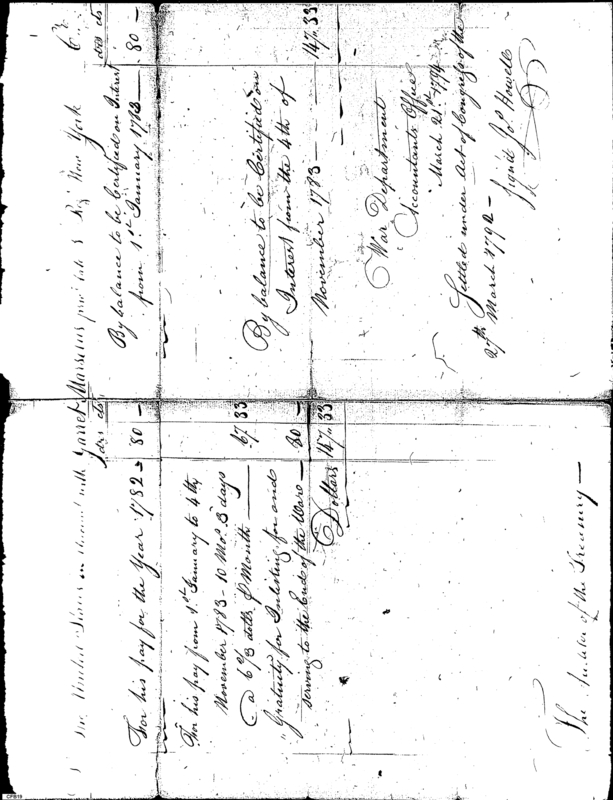 The United States in Account with Garret Marselus priv. late 2 Reg. New York Cr.
drs cts
For his pay for the Year 1782 - 80 -
For his pay from 1st January to 4th
November 1783 - 10 Mos. 3 days
@ 6 2/3 dolls. ⅌ Month 67 33
Gratuity for Inlisting for and
serving to the End of the War - 80 -
Dollars 147 33
drs cts
By balance to be Certified on Interest
from 1st January 1783 80 -
By balance to be Certified on
Interest from the 4th of
November 1783 147 33
War Department
Accountants Office
March 31st 1794
Settled under Act of Congress of the
27th March 1792 -
Sign'd Jos. Howell
The Auditor of the Treasury -
CPB19